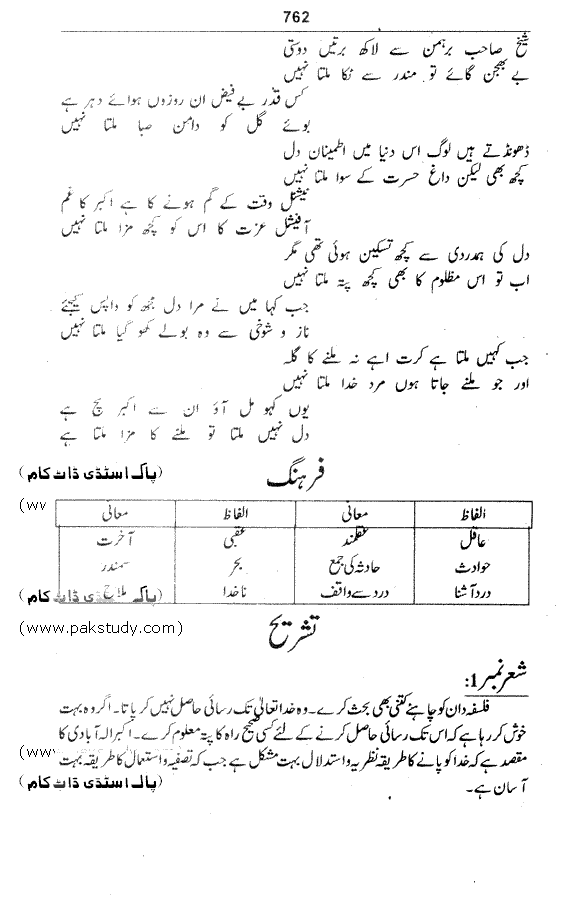 762
شیخ صاحب برہمن سے لاکھ برتیں دوستی
بے بھجن گائے تو مندر سے ٹکا ملتا نہیں
کس قدر بے فیض ان روزوں ہوائے دہر ہے
بوئے گل کو دامن صبا ملتا نہیں
ڈھونڈتے ہیں لوگ اس دنیا میں اطمینان دل
کچھ بھی لیکن داغ حسرت کے سوا ملتا نہیں
نیشنل وقت کے گم ہونے کا ہے اکبر کا غم
آفیشل عزت کا اس کو کچھ مزا ملتا نہیں
دل کی ہمدردی سے کچھ تسکین ہوئی تھی مگر
اب تو اس مظلوم کا بھی کچھ پتہ ملتا نہیں
جب کہا میں نے مرا دل مجھ کو واپس کیجئے
ناز و شوخی سے وہ بولے کھو گیا ملتا نہیں
جب کہیں ملتا ہے کرت اہے نہ ملنے کا گلہ
اور جو ملنے جاتا ہوں مرد خدا ملتا نہیں
یوں کہو مل آؤ ان سے اکبر سچ ہے
دل نہیں ملتا تو ملنے کا مزا ملتا ہے
(پاک اسٹڈی ڈاٹ کام)
فرہنگ
(wv
الفاظ معانی الفاظ معانی
عاقل عقلمند عقبی آخرت
حوادث حادثہ کی جمع بحر سمندر
درد آشنا درد سے واقف ناخدا ملاح
(پاک اسٹڈی ڈاٹ کام)
(www.pakstudy.com)
تشریح
شعر نمبر 1:
فلسفہ دان کو چاہئے کتنی بھی بحث کرے۔ وہ خدا تعالیٰ تک رسائی حاصل نہیں کر پاتا۔ اگر وہ بہت
خوش کر رہا ہے کہ اس تک رسائی حاصل کرنے کے لئے کسی صحیح راہ کا پتہ معلوم کرے۔ اکبر الہ آبادی کا
(wv
مقصد ہے کہ خدا کو پانے کا طریقہ نظریہ و استدلال بہت مشکل ہے جب کہ تصفیہ و استعمال کا طریقہ بہت
آسان ہے۔
(پاک اسٹڈی ڈاٹ کام)